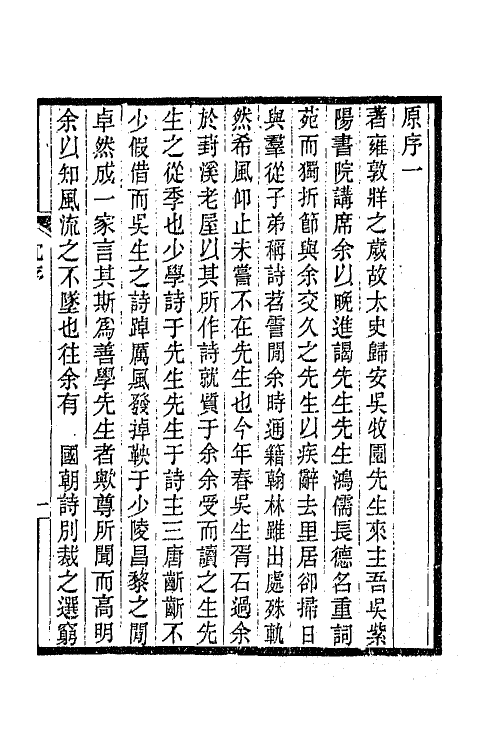 原序一
著雍敦牂之歲故太史歸安吳牧園先生來主吾吳紫
陽書院講席余以晚進謁先生先生鴻儒長德名重詞
苑而獨折節與余交久之先生以疾辭去里居卻掃日
與羣從子弟稱詩苕霅閒余時通籍翰林雖出處殊軌
然希風仰止未嘗不在先生也今年春吳生胥石過余
於葑溪老屋以其所作詩就質于余余受而讀之生先
生之從季也少學詩于先生先生于詩主三唐齗齗不
少假借而吳生之詩踔厲風發掉鞅于少陵昌黎之閒
卓然成一家言其斯爲善學先生者歟尊所聞而高明
余以知風流之不墜也往余有　國朝詩別裁之選窮
一